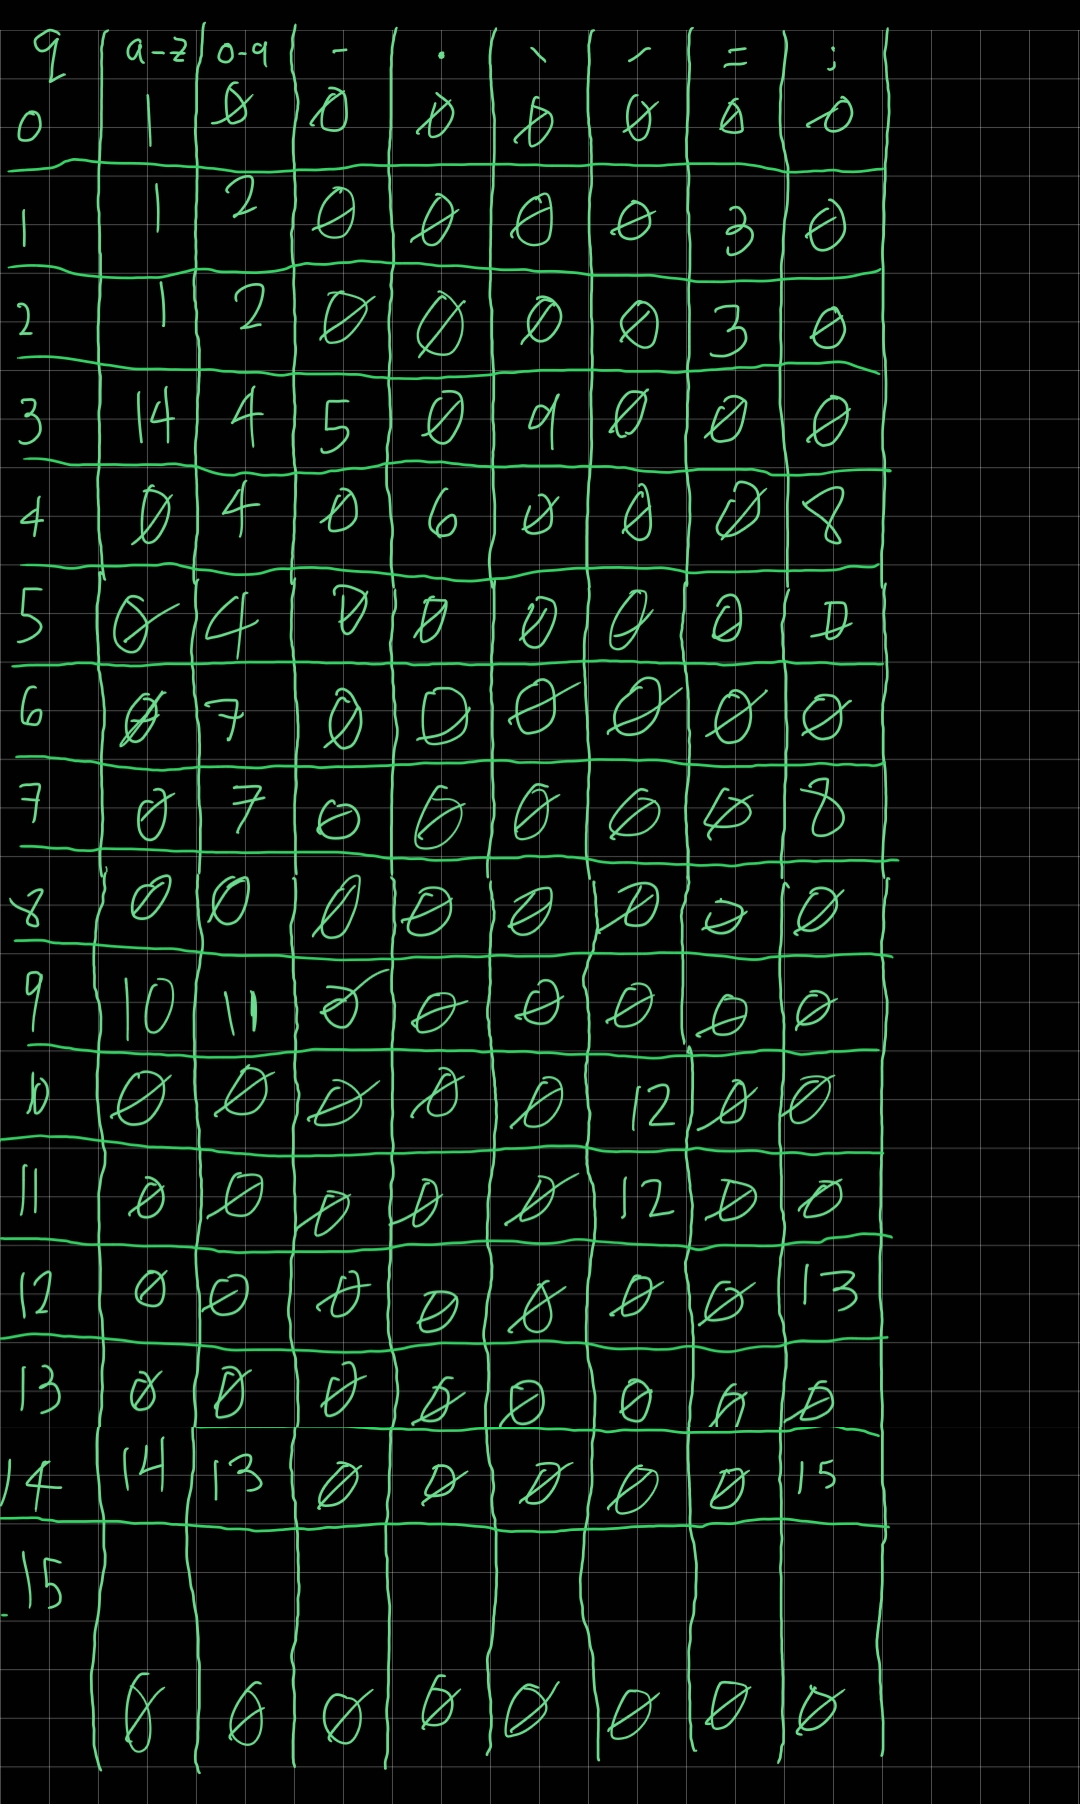 q a-z 0-9 - . \ / = ;
0 1 Ø Ø Ø Ø Ø Ø Ø
1 1 2 Ø Ø Ø Ø 3 Ø
2 1 2 Ø Ø Ø Ø 3 Ø
3 14 4 5 Ø 9 Ø Ø Ø
4 Ø 4 Ø 6 Ø Ø Ø 8
5 Ø 4 Ø Ø Ø Ø Ø Ø
6 Ø 7 Ø Ø Ø Ø Ø Ø
7 Ø 7 Ø Ø Ø Ø Ø 8
8 Ø Ø Ø Ø Ø Ø Ø Ø
9 10 11 Ø Ø Ø Ø Ø Ø
10 Ø Ø Ø Ø Ø 12 Ø Ø
11 Ø Ø Ø Ø Ø 12 Ø Ø
12 Ø Ø Ø Ø Ø Ø Ø 13
13 Ø Ø Ø Ø Ø Ø Ø Ø
14 14 13 Ø Ø Ø Ø Ø 15
15
Ø Ø Ø Ø Ø Ø Ø Ø